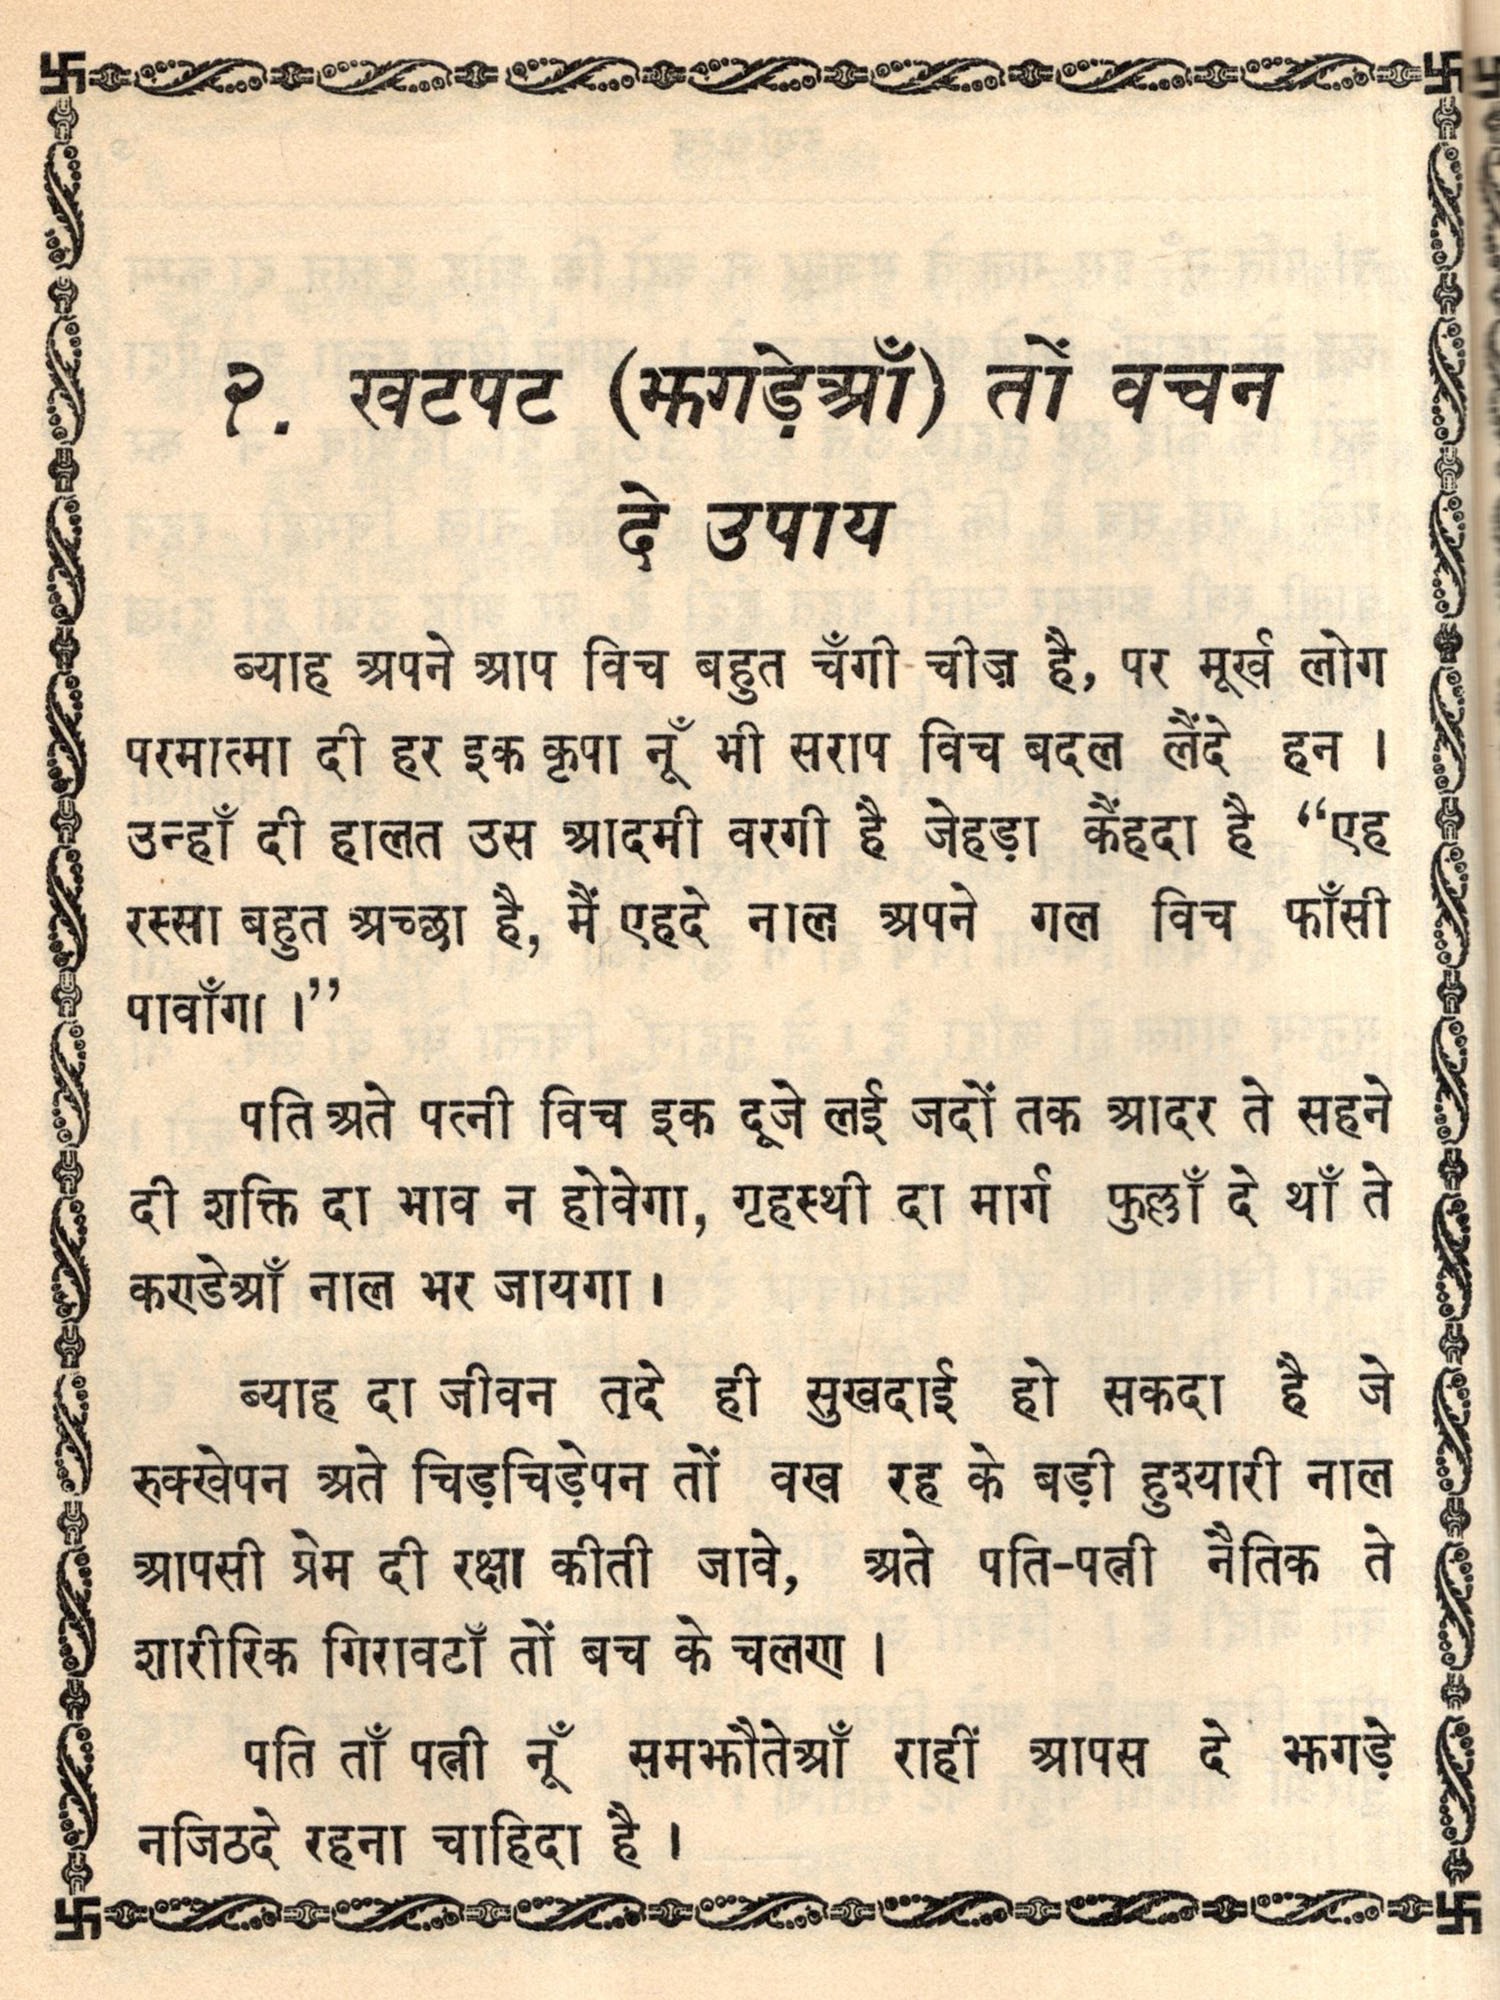 २. खटपट (झगड़ेआँ) तों वचन
दे उपाय
ब्याह अपने आप विच बहुत चँगी चीज़ है, पर मूर्ख लोग
परमात्मा दी हर इक कृपा नूँ भी सराप विच बदल लैंदे हन ।
उन्हाँ दी हालत उस आदमी वरगी है जेहड़ा कैंहदा है “एह
रस्सा बहुत अच्छा है, मैं एहदे नाल अपने गल विच फाँसी
पावाँगा ।”
पति अते पत्नी विच इक दूजे लई जदों तक आदर ते सहने
दी शक्ति दा भाव न होवेगा, गृहस्थी दा मार्ग फुल्लाँ दे थाँ ते
कण्डेआँ नाल भर जायगा ।
ब्याह दा जीवन तदे ही सुखदाई हो सकदा है जे
रुक्खेपन अते चिड़चिड़ेपन तों वख रह के बड़ी हुश्यारी नाल
आपसी प्रेम दी रक्षा कीती जावे, अते पति-पत्नी नैतिक ते
शारीरिक गिरावटाँ तों बच के चलण ।
पति ताँ पत्नी नूँ समझौतेआँ राहीं आपस दे झगड़े
नजिठदे रहना चाहिदा है ।